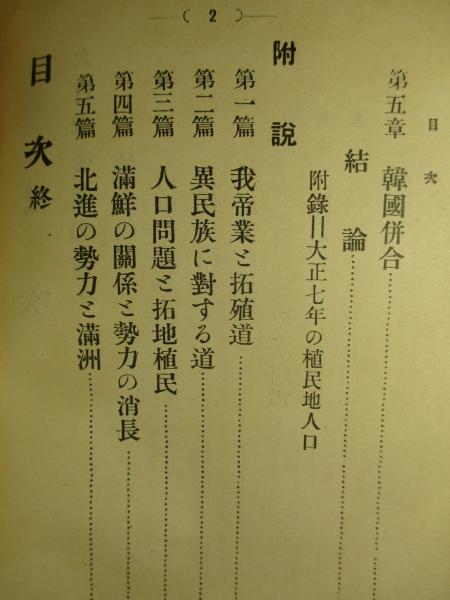 ( 2 )
目次
第五章 韓國併合
結論
附錄=大正七年の植民地人口
附說
第一篇 我帝業と拓殖道
第二篇 異民族に對する道
第三篇 人口問題と拓地植民
第四篇 滿鮮の關係と勢力の消長
第五篇 北進の勢力と滿洲
目次終